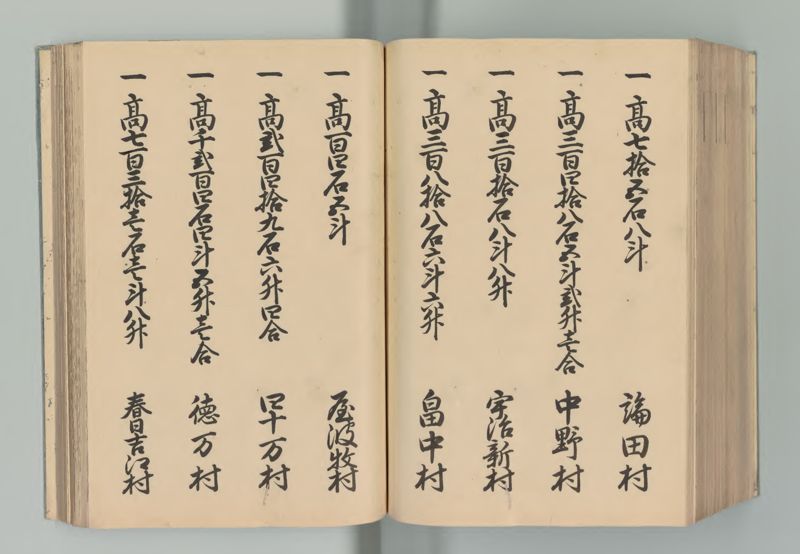 一 高七拾五石八斗 論田村
一 高三百四拾八石五斗弐升壱合 中野村
一 高三百拾石八斗八升 宇治新村
一 高三百八拾八石六斗六升 畠中村
一 高百四石五斗 屋波牧村
一 高弐百四拾九石六升四合 四十万村
一 高千弐百四石四斗五升壱合 徳万村
一 高七百三拾壱石壱斗八升 春日吉江村